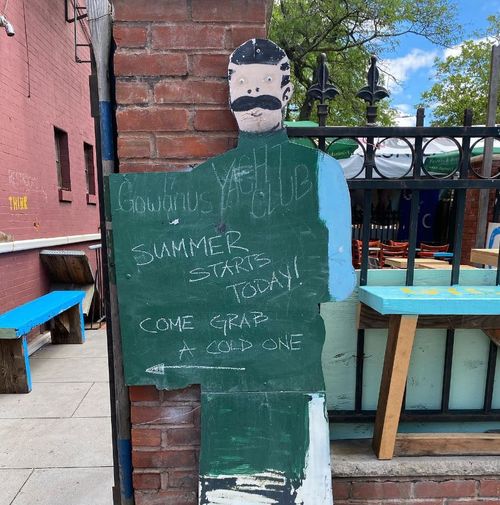 Gowanus YACHT
CLUB
SUMMER
STARTS
TODAY!
COME GRAB
A COLD ONE
THINK